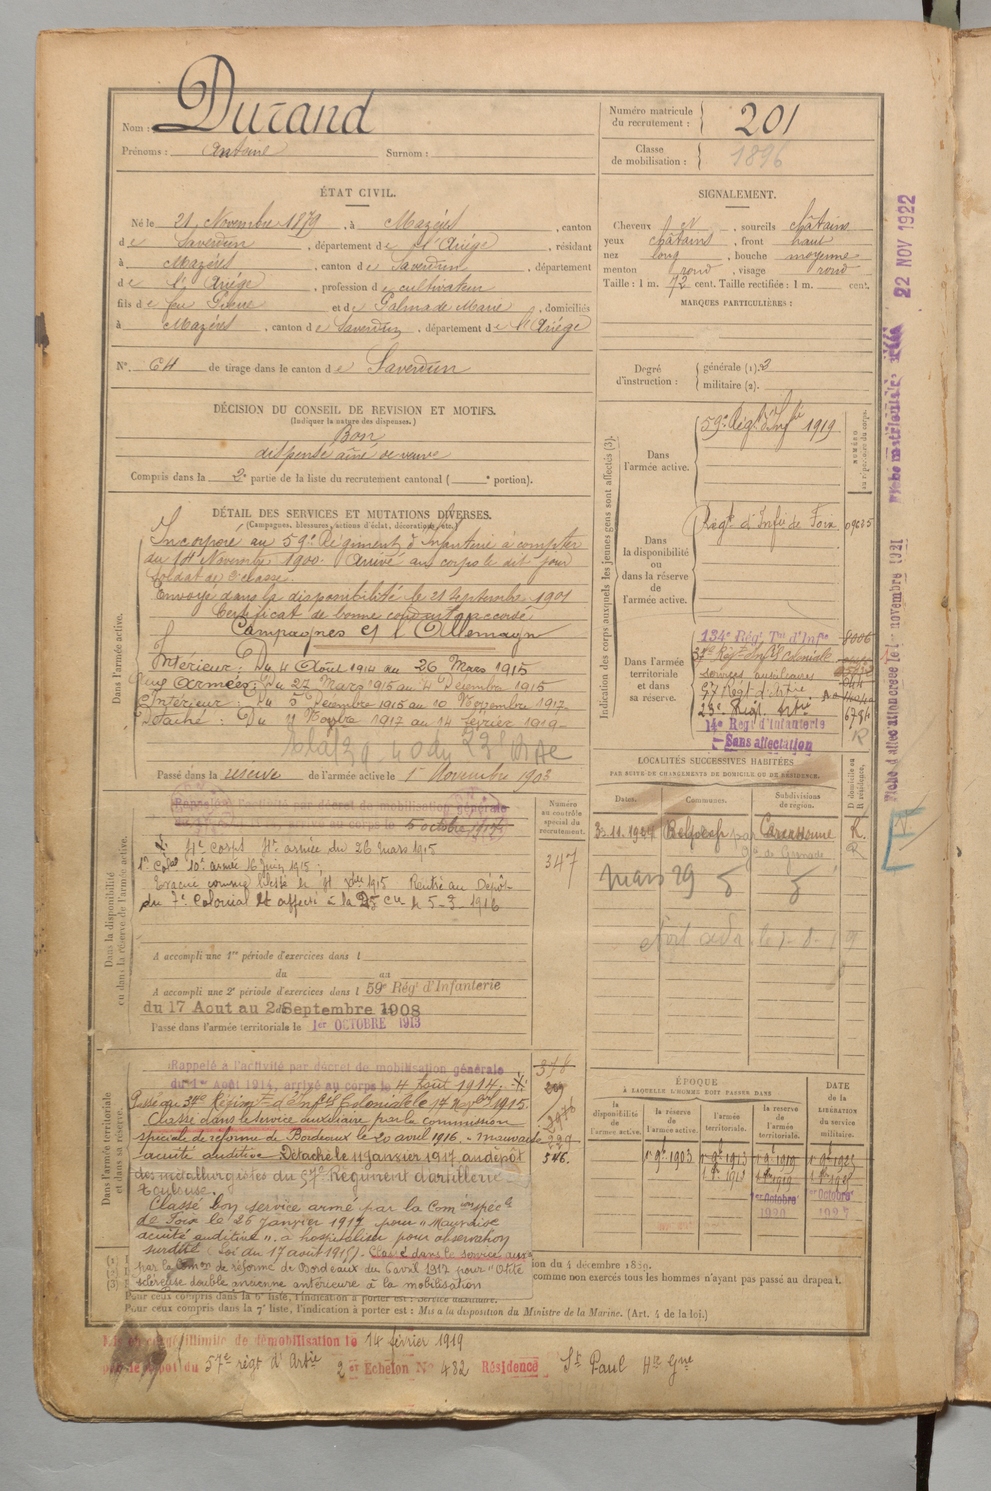 Nom : Durand
Prénoms : Antoine Surnom :
Numéro matricule du recrutement : 201
Classe de mobilisation : 1896
ÉTAT CIVIL.
Né le 21 Novembre 1879, à Mazéres, canton
de Saverdun, département de l'Ariége, résidant
à Mazéres, canton de Saverdun, département
de l'Ariége, profession de cultivateur
fils de feu Pierre et de Palma de Marie, domiciliés
à Mazéres, canton de Saverdun, département de l'Ariége
N° 64 de tirage dans le canton de Saverdun
SIGNALEMENT.
Cheveux , sourcils châtains
yeux châtains, front haut
nez long, bouche moyenne
menton rond, visage rond
Taille : 1 m. 72 cent. Taille rectifiée : 1 m. cent.
MARQUES PARTICULIÈRES :
Degré d'instruction : générale (1). 3
militaire (2).
DÉCISION DU CONSEIL DE REVISION ET MOTIFS.
(Indiquer la nature des dispenses.)
Bon
dispensé ainé de veuve
Compris dans la 2e partie de la liste du recrutement cantonal ( e portion).
DÉTAIL DES SERVICES ET MUTATIONS DIVERSES.
(Campagnes, blessures, actions d'éclat, décorations, etc.)
Dans l'armée active.
Incorporé au 59e Régiment d'Infanterie à compter
du 14 Novembre 1900. Arrivé au corps le dit jour
soldat de 2e classe.
Envoyé dans la disponibilité le 21 septembre 1901
Certificat de bonne conduite accordé
Campagnes et l'Allemagne
Intérieur : Du 4 Août 1914 au 26 Mars 1915
Aux Armées : Du 27 Mars 1915 au 4 Décembre 1915
Intérieur : Du 5 Décembre 1915 au 10 Novembre 1917
Détaché : Du 11 Novbre 1917 au 14 février 1919
Passé dans la réserve de l'armée active le 1er Novembre 1903
Indication des corps auxquels les jeunes gens sont affectés (3).
Dans l'armée active.
59e Régt d'Infie 1919
NUMÉRO au répertoire du corps.
Dans la disponibilité ou dans la réserve de l'armée active.
Régt d'Infie de Foix
Dans l'armée territoriale et dans sa réserve.
134e Régt Tal d'Infie 8006
37e Régt Infie Coloniale
services auxiliaires
57 Régt d'artie
23e Régt Artie 6784
14e Regt d'Infanterie
Sans affectation
LOCALITÉS SUCCESSIVES HABITÉES
PAR SUITE DE CHANGEMENTS DE DOMICILE OU DE RÉSIDENCE.
Dates. Communes. Subdivisions de région. D domicile ou R résidence.
Carcassonne R.
mars 29
Dans la disponibilité ou dans la réserve de l'armée active.
Numéro au contrôle spécial du recrutement.
347
Rappelé à l'activité par décret de mobilisation générale
au corps le 5 octobre
4e corps 4e armée du 26 mars 1915
10e armée 16 juin 1915 ;
Evacué comme blessé le 4 Xbre 1915 Rentré au Dépôt
du 7e Colonial et affecté à la 25 Cie le 5-3-1916
A accompli une 1re période d'exercices dans l
du au
A accompli une 2e période d'exercices dans l 59e Rég' d'Infanterie
du 17 Aout au 2 Septembre 1908
Passé dans l'armée territoriale le 1er OCTOBRE 1913
Dans l'armée territoriale et dans sa réserve.
Rappelé à l'activité par décret de mobilisation générale
du 1er Août 1914, arrivé au corps le 4 Août 1914.
Passé au 37e Régimt d'Infie Coloniale le 17 1915.
Classé dans le service auxiliaire par la commission
spéciale de réforme de Bordeaux le 20 avril 1916. "mauvaise
acuité auditive" Détaché le 11 janvier 1917 au dépôt 546.
des métallurgistes du 57e Régiment d'artillerie
Toulouse.
Classé bon service armé par la Comion spécle
de Foix le 26 Janvier 1917 pour "Mauvaise
acuité auditive". à hospitaliser pour observation
surdité (Loi du 17 août 1915). Classé dans le service auxre
par la Comon de réforme de Bordeaux du 6 avril 1917 pour "Otite
scléreuse double ancienne antérieure à la mobilisation
ÉPOQUE
À LAQUELLE L'HOMME DOIT PASSER DANS
la disponibilité de l'armée active.
la réserve de l'armée active.
l'armée territoriale.
la réserve de l'armée territoriale.
DATE DE LA LIBÉRATION DU service militaire.
1er Octobre 1920
1er Octobre 1927
ion du 4 décembre 1889.
comme non exercés tous les hommes n'ayant pas passé au drapeau.
Pour ceux compris dans la 6e liste, l'indication à porter est : Service auxiliaire.
Pour ceux compris dans la 7e liste, l'indication à porter est : Mis à la disposition du Ministre de la Marine. (Art. 4 de la loi.)
illimité de démobilisation le 14 février 1919
dépôt du 57e régt d'Artie 2e Echelon N° 482 Résidence St Paul Hte Gne
22 NOV 1922
novembre 1921